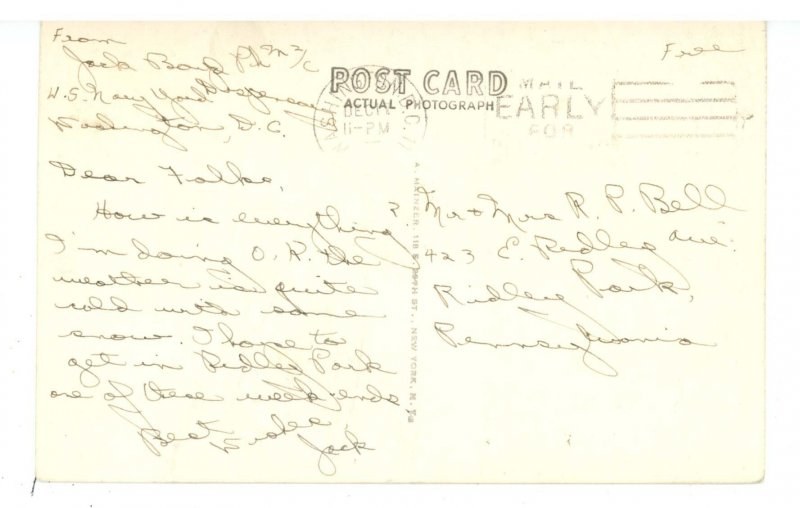 From
Jack Boyd PhM 2/c
U.S. Navy Yard Dispensary
Washington, D.C.
Free
POST CARD
ACTUAL PHOTOGRAPH
WASHINGTON, D.C.
DEC
11-PM
MAIL
EARLY
FOR
Dear Folks,
How is everything?
I'm doing O.K. The
weather is quite
cold with some
snow. I hope to
get in Ridley Park
one of these week ends.
Best Wishes
Jack
A. MAINZER, 118 E. 28TH ST., NEW YORK, N.Y.
Mr & Mrs R. P. Bell
423 E. Ridley Ave.
Ridley Park,
Pennsylvania